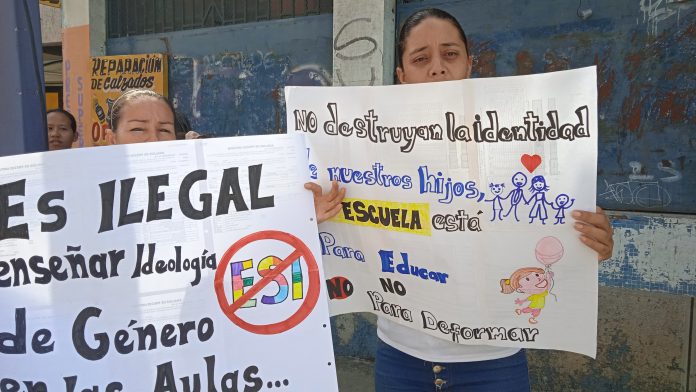 REPARACIÓN
DE Calzados
Es ILEGAL
enseñar Ideología
ESI
de Género
en las Aulas...
No destruyan la identidad
de nuestros hijos,
ESCUELA está
Para Educar
NO NO
Para Deformar